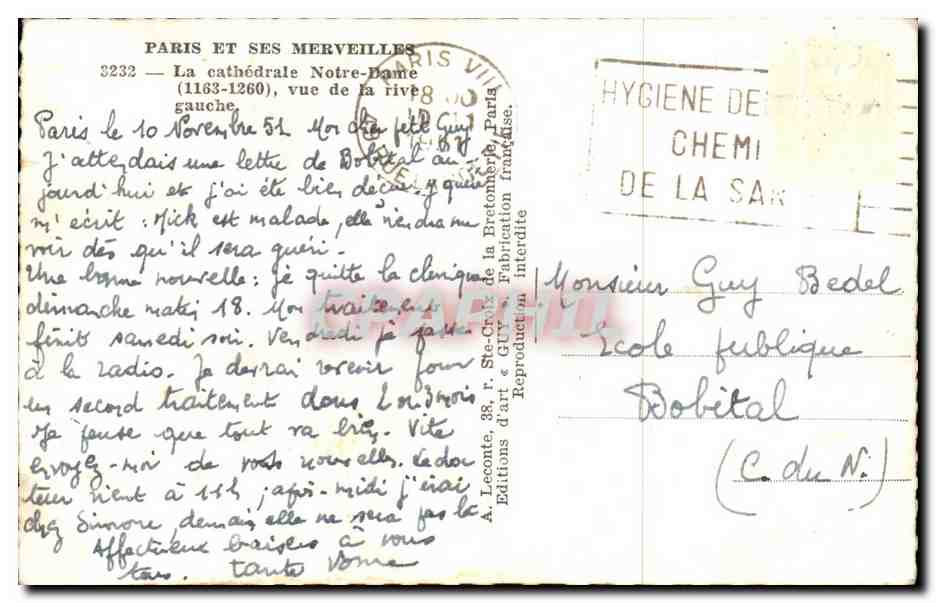 PARIS ET SES MERVEILLES
3232 — La cathédrale Notre-Dame
(1163-1260), vue de la rive
gauche.
Paris le 10 Novembre 51 Mon cher petit Guy
J'attendais une lettre de Bobital au-
jourd'hui et j'ai été bien déçue. y
m'écrit : Mick est malade, elle viendra me
voir dès qu'il sera guéri.
Une bonne nouvelle : je quitte la clinique
dimanche matin 18. Mon traitement
finit samedi soir. Vendredi je passe
à la radio. Je devrai revenir pour
un second traitement dans 2 ou 3 mois
Je pense que tout va bien. Vite
envoyez-moi de vos nouvelles. Le doc
teur vient à 11h, j'après-midi j'irai
chez Simone, demain elle ne sera pas là
Affectueux baisers à vous
tous. tante Yvonne
A. Leconte, 38, r. Ste-Croix de la Bretonnerie, Paris
Editions d'art « GUY ». Fabrication française.
Reproduction interdite
PARIS VIII
18
HYGIENE DE
CHEMI
DE LA SAN
Monsieur Guy Bedel
Ecole publique
Bobital
(C. du N.)
CPAPHIL